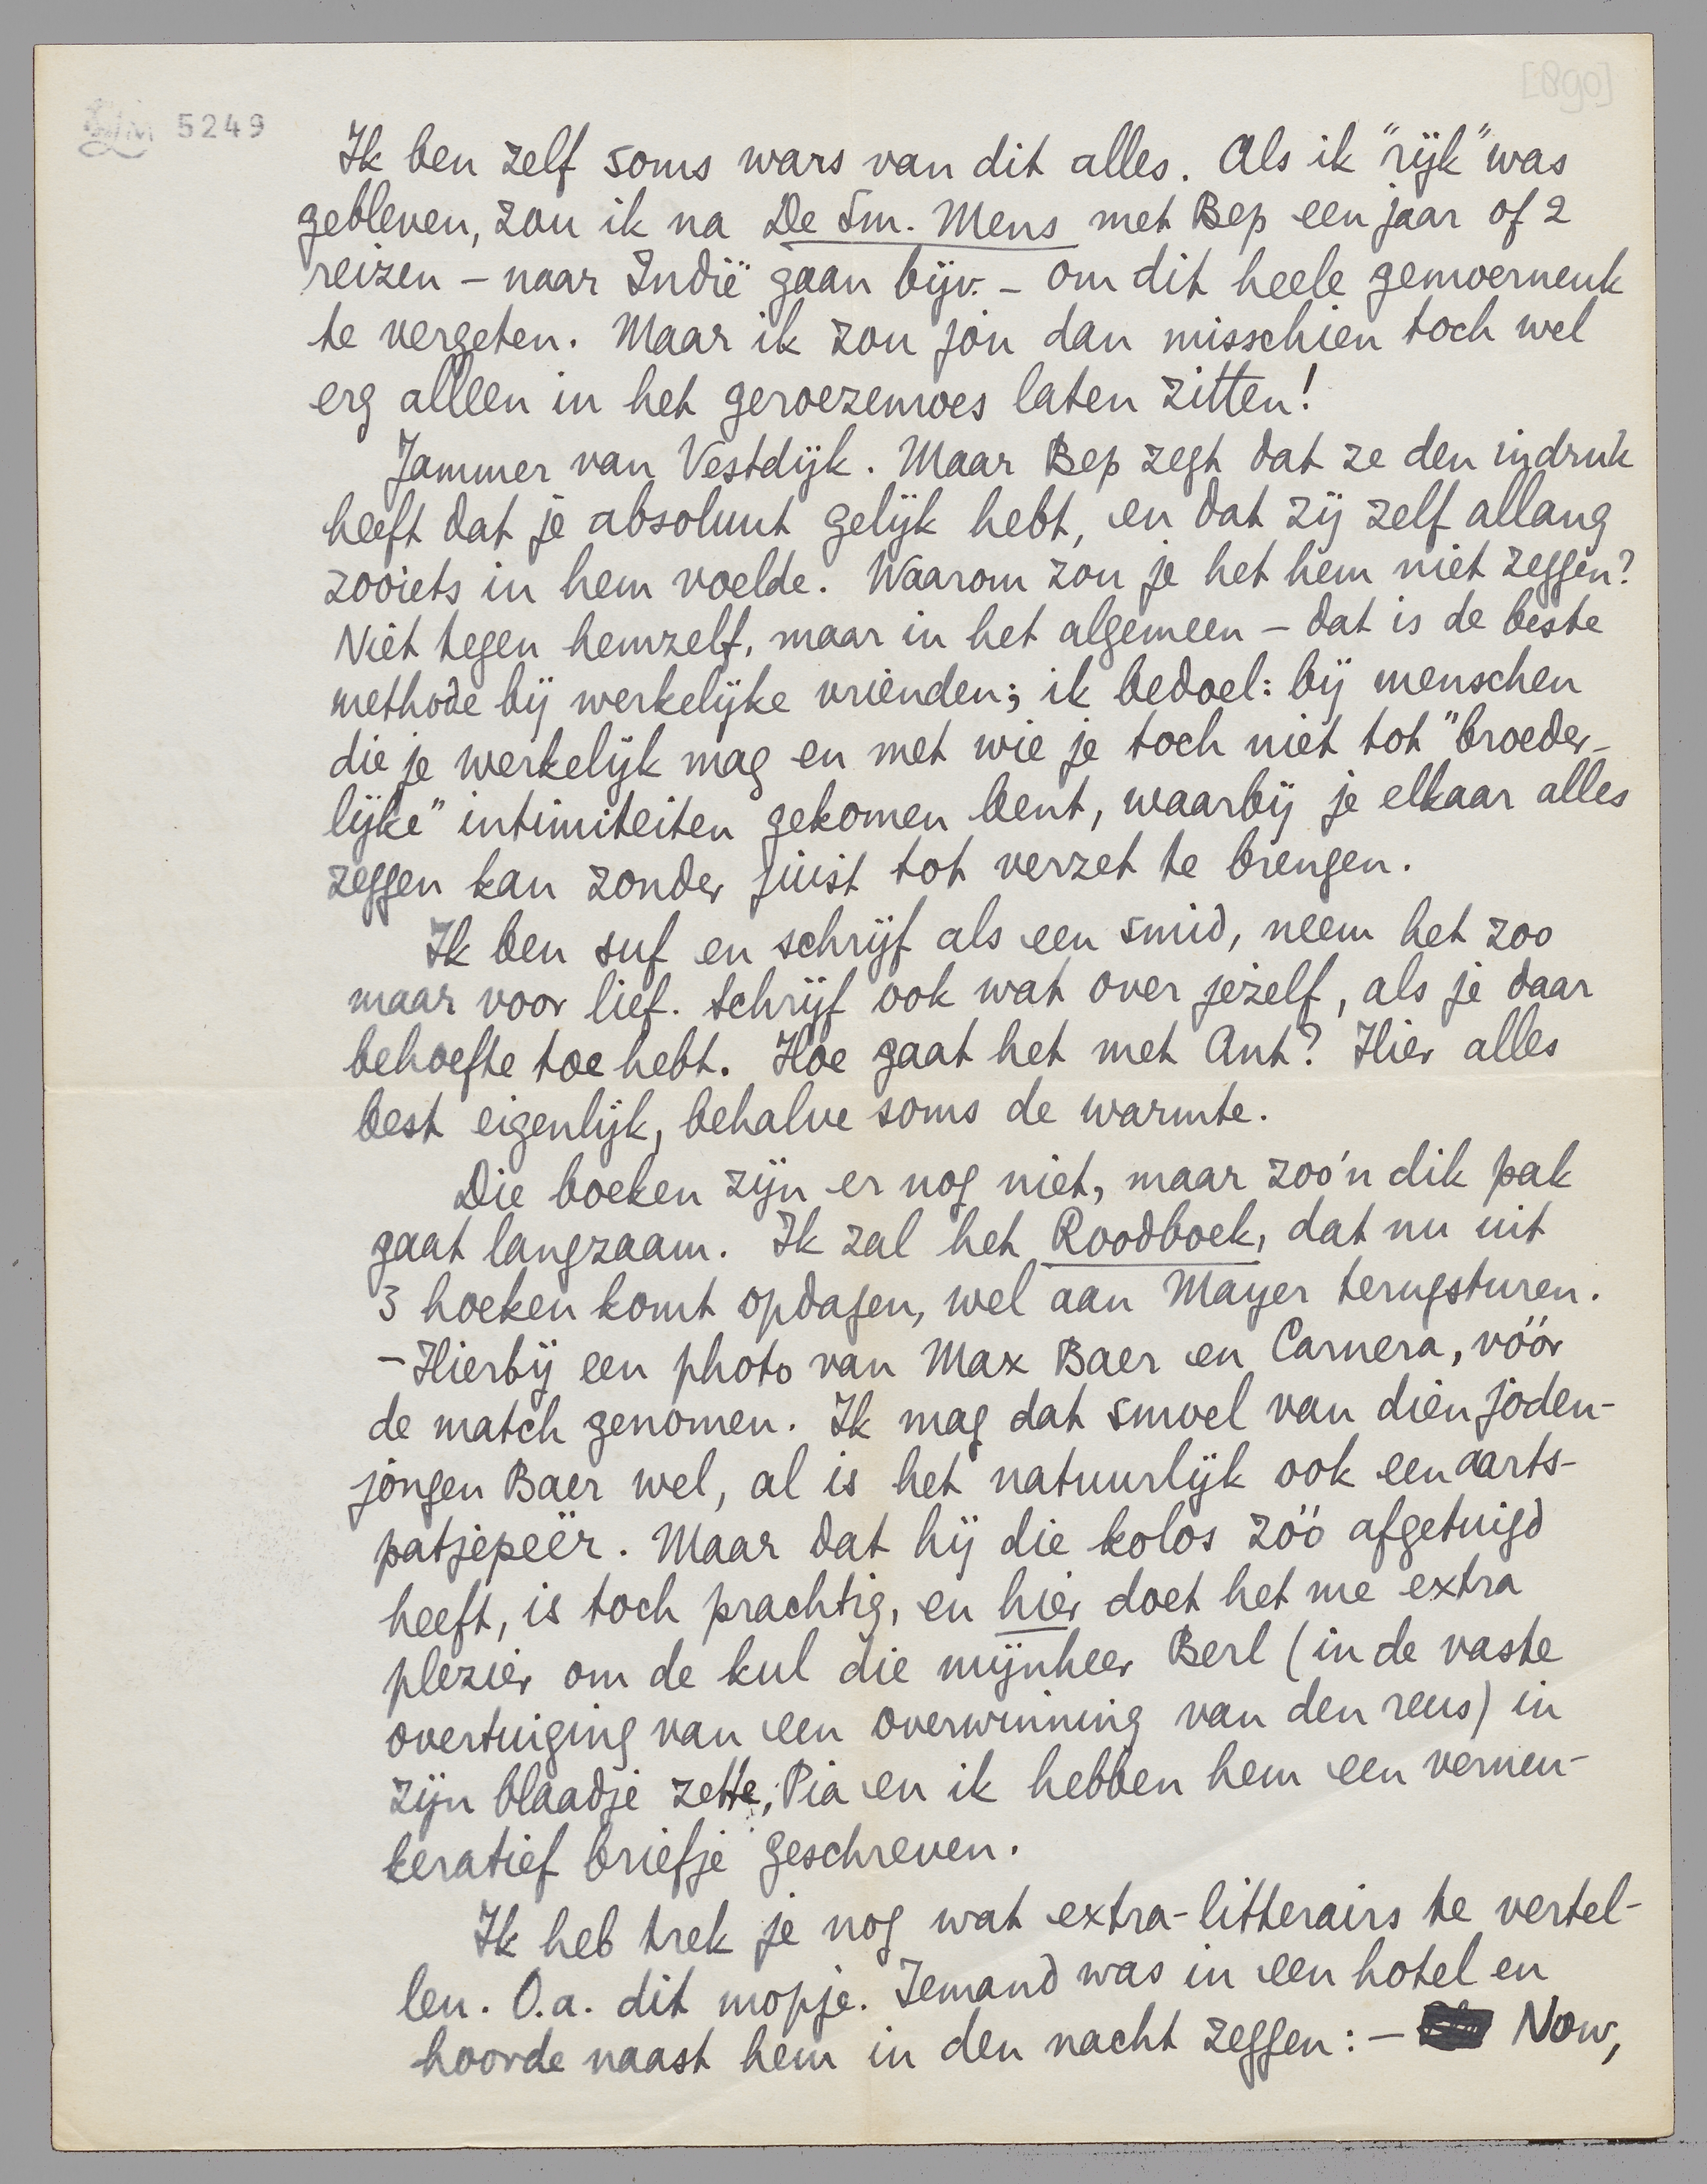 [890]
5249
Ik ben zelf soms wars van dit alles. Als ik "rijk" was
gebleven, zou ik na De Sm. Mens met Bep een jaar of 2
reizen – naar Indië gaan bijv. – om dit heele gemoerneuk
te vergeten. Maar ik zou jòu dan misschien toch wel
erg alleen in het geroezemoes laten zitten!
Jammer van Vestdijk. Maar Bep zegt dat ze den indruk
heeft dat je absoluut gelijk hebt, en dat zij zelf allang
zooiets in hem voelde. Waarom zou je het hem niet zeggen?
Niet tegen hemzelf, maar in het algemeen – dat is de beste
methode bij werkelijke vrienden; ik bedoel: bij menschen
die je werkelijk mag en met wie je toch niet tot "broeder-
lijke" intimiteiten gekomen bent, waarbij je elkaar alles
zeggen kan zonder juist tot verzet te brengen.
Ik ben suf en schrijf als een smid, neem het zoo
maar voor lief. Schrijf ook wat over jezelf, als je daar
behoefte toe hebt. Hoe gaat het met Ant? Hier alles
best eigenlijk, behalve soms de warmte.
Die boeken zijn er nog niet, maar zoo'n dik pak
gaat langzaam. Ik zal het Roodboek, dat nu uit
3 hoeken komt opdagen, wel aan Mayer terugsturen.
– Hierbij een photo van Max Baer en Carnera, vóór
de match genomen. Ik mag dat smoel van dien joden-
jongen Baer wel, al is het natuurlijk ook een aarts-
patjepeër. Maar dat hij die kolos zóó afgetuigd
heeft, is toch prachtig, en hier doet het me extra
plezier om de kul die mijnheer Berl (in de vaste
overtuiging van een overwinning van den reus) in
zijn blaadje zette; Pia en ik hebben hem een verneu-
keratief briefje geschreven.
Ik heb trek je nog wat extra-litterairs te vertel-
len. O.a. dit mopje. Iemand was in een hotel en
hoorde naast hem in den nacht zeggen: – Now,